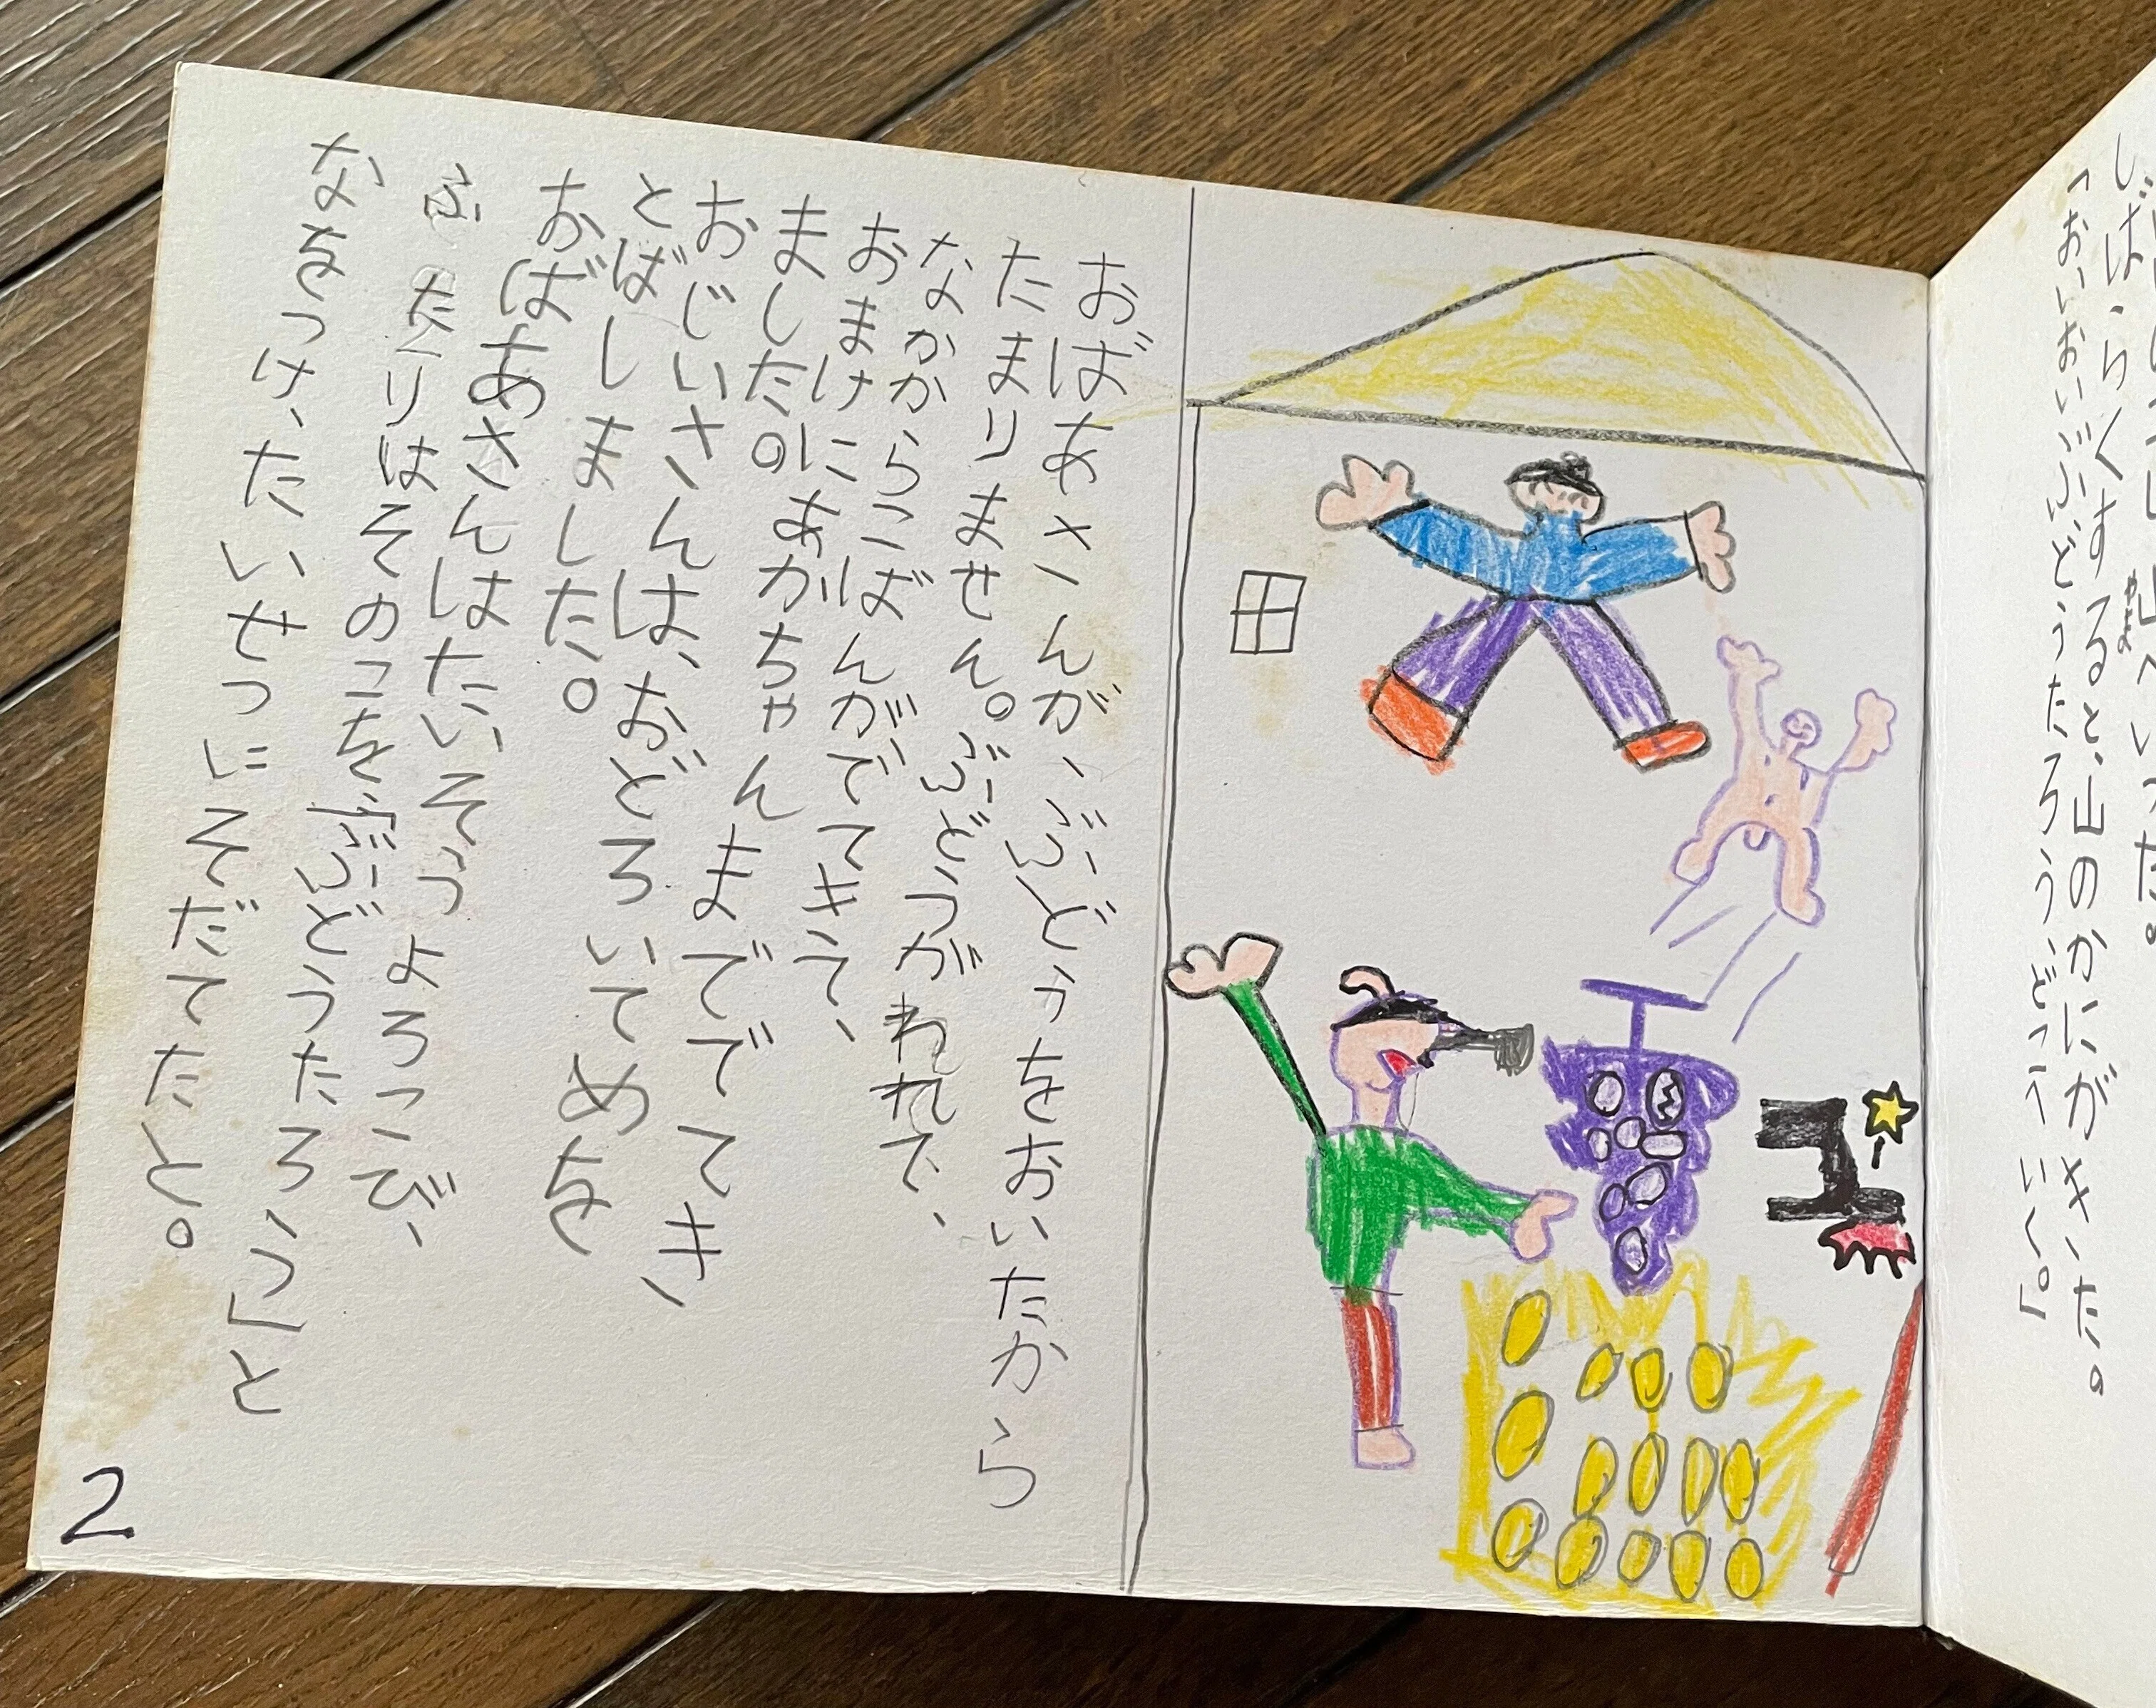 山へいった。
やま
しばらくすると、山のかにがきいた。
「おいおい、ぶどうたろう、どこへいく。」
おばあさんが、ぶどうをおいたから
たまりません。ぶどうがわれて、
なかからこばんがでてきて、
おまけにあかちゃんまででてき
ました。
おじいさんは、おどろいてめを
とばしました。
おばあさんはたいそうよろこび、
ふたりはそのこを、「ぶどうたろう」と
なをつけ、たいせつにそだてたと。
2